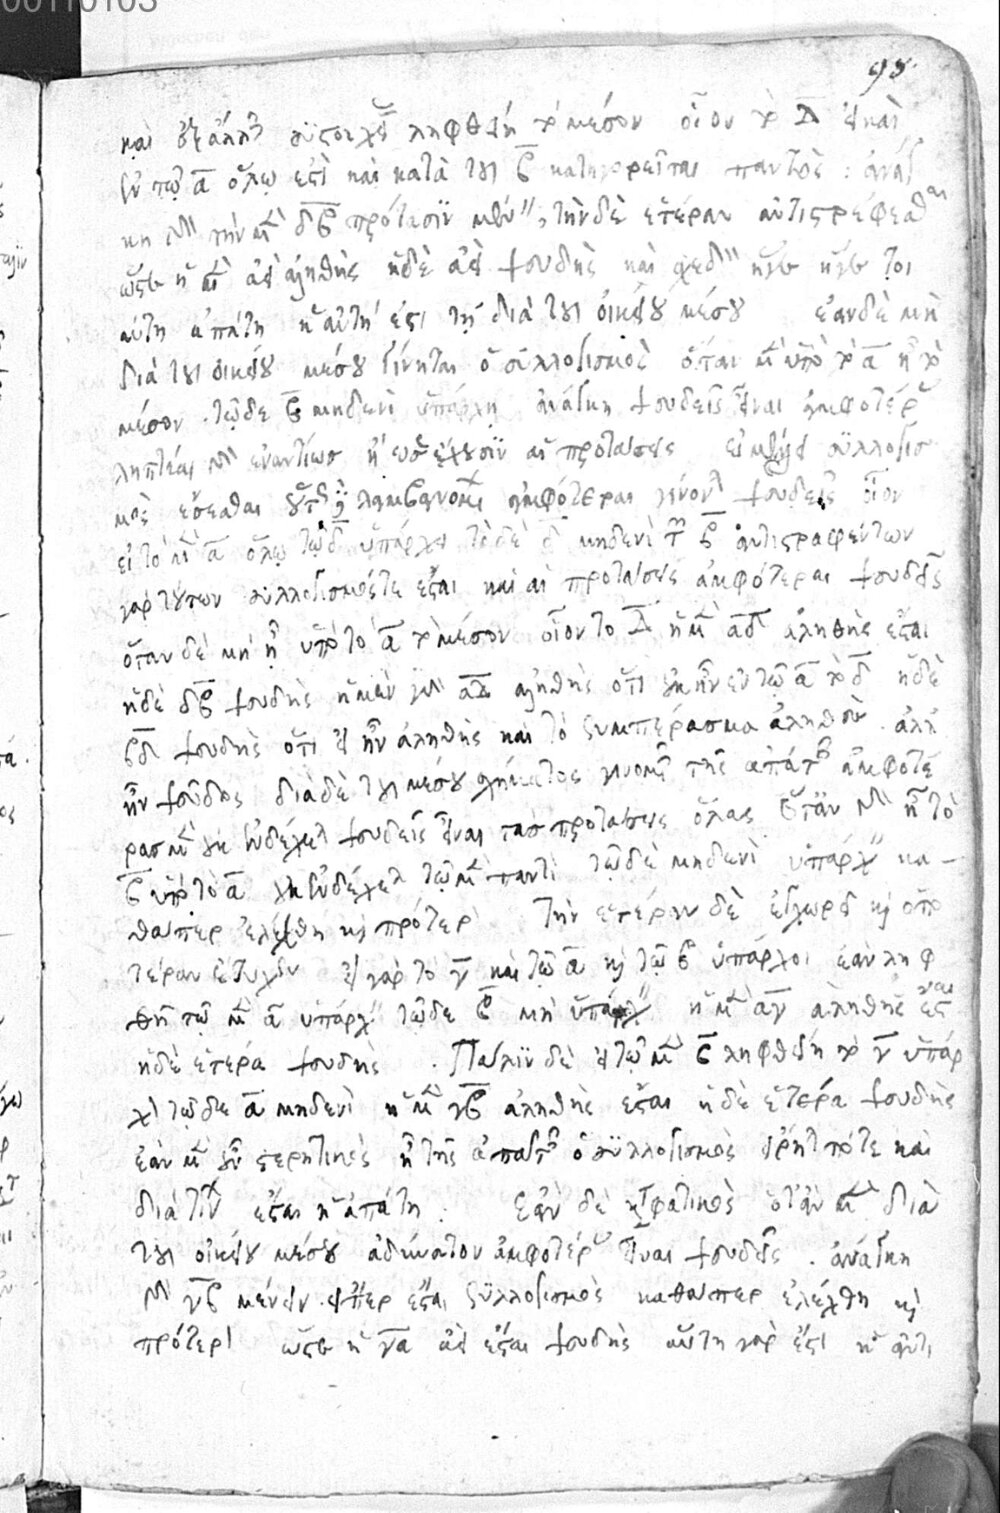 καὶ ἐξ ἄλλης συστοιχίας ληφθείη τὸ μέσον οἷον τὸ Δ εἰ καὶ
ἐν τῷ α ὅλῳ ἐστὶ καὶ κατὰ τοῦ β κατηγορεῖται παντὸς : ἀνάγ
κη γὰρ τὴν μὲν δβ πρότασιν μένειν, τὴν δὲ ἑτέραν ἀντιστρέφεσθαι
ὥστε ἡ μὲν ἀεὶ ἀληθὴς ἡ δὲ ἀεὶ ψευδὴς καὶ σχεδὸν ἥγε τοι
αύτη ἀπάτη ἡ αὐτή ἐστι τῇ διὰ τοῦ οἰκείου μέσου ἐὰν δὲ μὴ
διὰ τοῦ οἰκείου μέσου γίνηται ὁ συλλογισμὸς ὅταν μὲν ὑπὸ τὸ α ᾖ τὸ
μέσον τῷ δε β μηδενὶ ὑπάρχῃ ἀνάγκη ψευδεῖς εἶναι ἀμφοτέρας
ληπτέαι γὰρ ἐναντίως ἢ ὡς ἔχουσιν αἱ προτάσεις εἰ μέλλει συλλογισ
μὸς ἔσεσθαι οὕτω δὲ λαμβανομένων ἀμφότεραι γίνονται ψευδεῖς οἷον
εἰ τὸ μὲν α ὅλῳ τῷ δ ὑπάρχει τὸ δὲ δ μηδενὶ τῶν β ἀντιστραφέντων
γὰρ τούτων συλλογισμός τε ἔσται καὶ αἱ προτάσεις ἀμφότεραι ψευδεῖς
ὅταν δὲ μὴ ᾖ ὑπὸ τὸ α τὸ μέσον οἷον το Δ ἡ μὲν αδ ἀληθὴς ἔσται
ἡ δὲ δβ ψευδὴς ἡ μὲν γὰρ αδ ἀληθὴς ὅτι οὐκ ἦν ἐν τῷ α τὸ δ ἡ δὲ
βδ ψευδὴς ὅτι εἰ ἦν ἀληθὴς καὶ τὸ συμπέρασμα ἀληθὲς ἀλλ
ἦν ψεῦδος διὰ δὲ τοῦ μέσου σχήματος γινομένης τῆς ἀπάτης ἀμφοτέ
ρας μὲν οὐκ ἐνδέχεται ψευδεῖς εἶναι τὰς προτάσεις ὅλας ὅταν γὰρ ᾖ τὸ
β ὑπὸ τὸ α οὐκ ἐνδέχεται τῷ μὲν παντὶ τῷ δὲ μηδενὶ ὑπάρχειν κα
θάπερ ἐλέχθη καὶ πρότερον τὴν ἑτέραν δὲ ἐγχωρεῖ καὶ ὁπο
τέραν ἔτυχεν εἰ γὰρ τὸ γ καὶ τῷ α καὶ τῷ β ὑπάρχοι ἐὰν ληφ
θῇ τῷ μὲν α ὑπάρχειν τῷ δε β μὴ ὑπάρχειν ἡ μὲν αγ ἀληθὴς ἔσται
ἡ δὲ ἑτέρα ψευδής . Πάλιν δὲ εἰ τῷ μὲν β ληφθείη τὸ γ ὑπάρ
χειν τῷ δε α μηδενὶ ἡ μὲν γβ ἀληθὴς ἔσται ἡ δὲ ἑτέρα ψευδής
ἐὰν μὲν οὖν στερητικὸς ᾖ τῆς ἀπάτης ὁ συλλογισμὸς εἴρηται πότε καὶ
διὰ τίνων ἔσται ἡ ἀπάτη . Ἐὰν δὲ καταφατικὸς ὅταν μὲν διὰ
τοῦ οἰκείου μέσου ἀδύνατον ἀμφοτέρας εἶναι ψευδεῖς . ἀνάγκη
γὰρ γβ μένειν εἴπερ ἔσται συλλογισμὸς καθάπερ ἐλέχθη καὶ
πρότερον ὥστε ἡ γα ἀεὶ ἔσται ψευδὴς αὕτη γὰρ ἐστι ἡ ἀντι